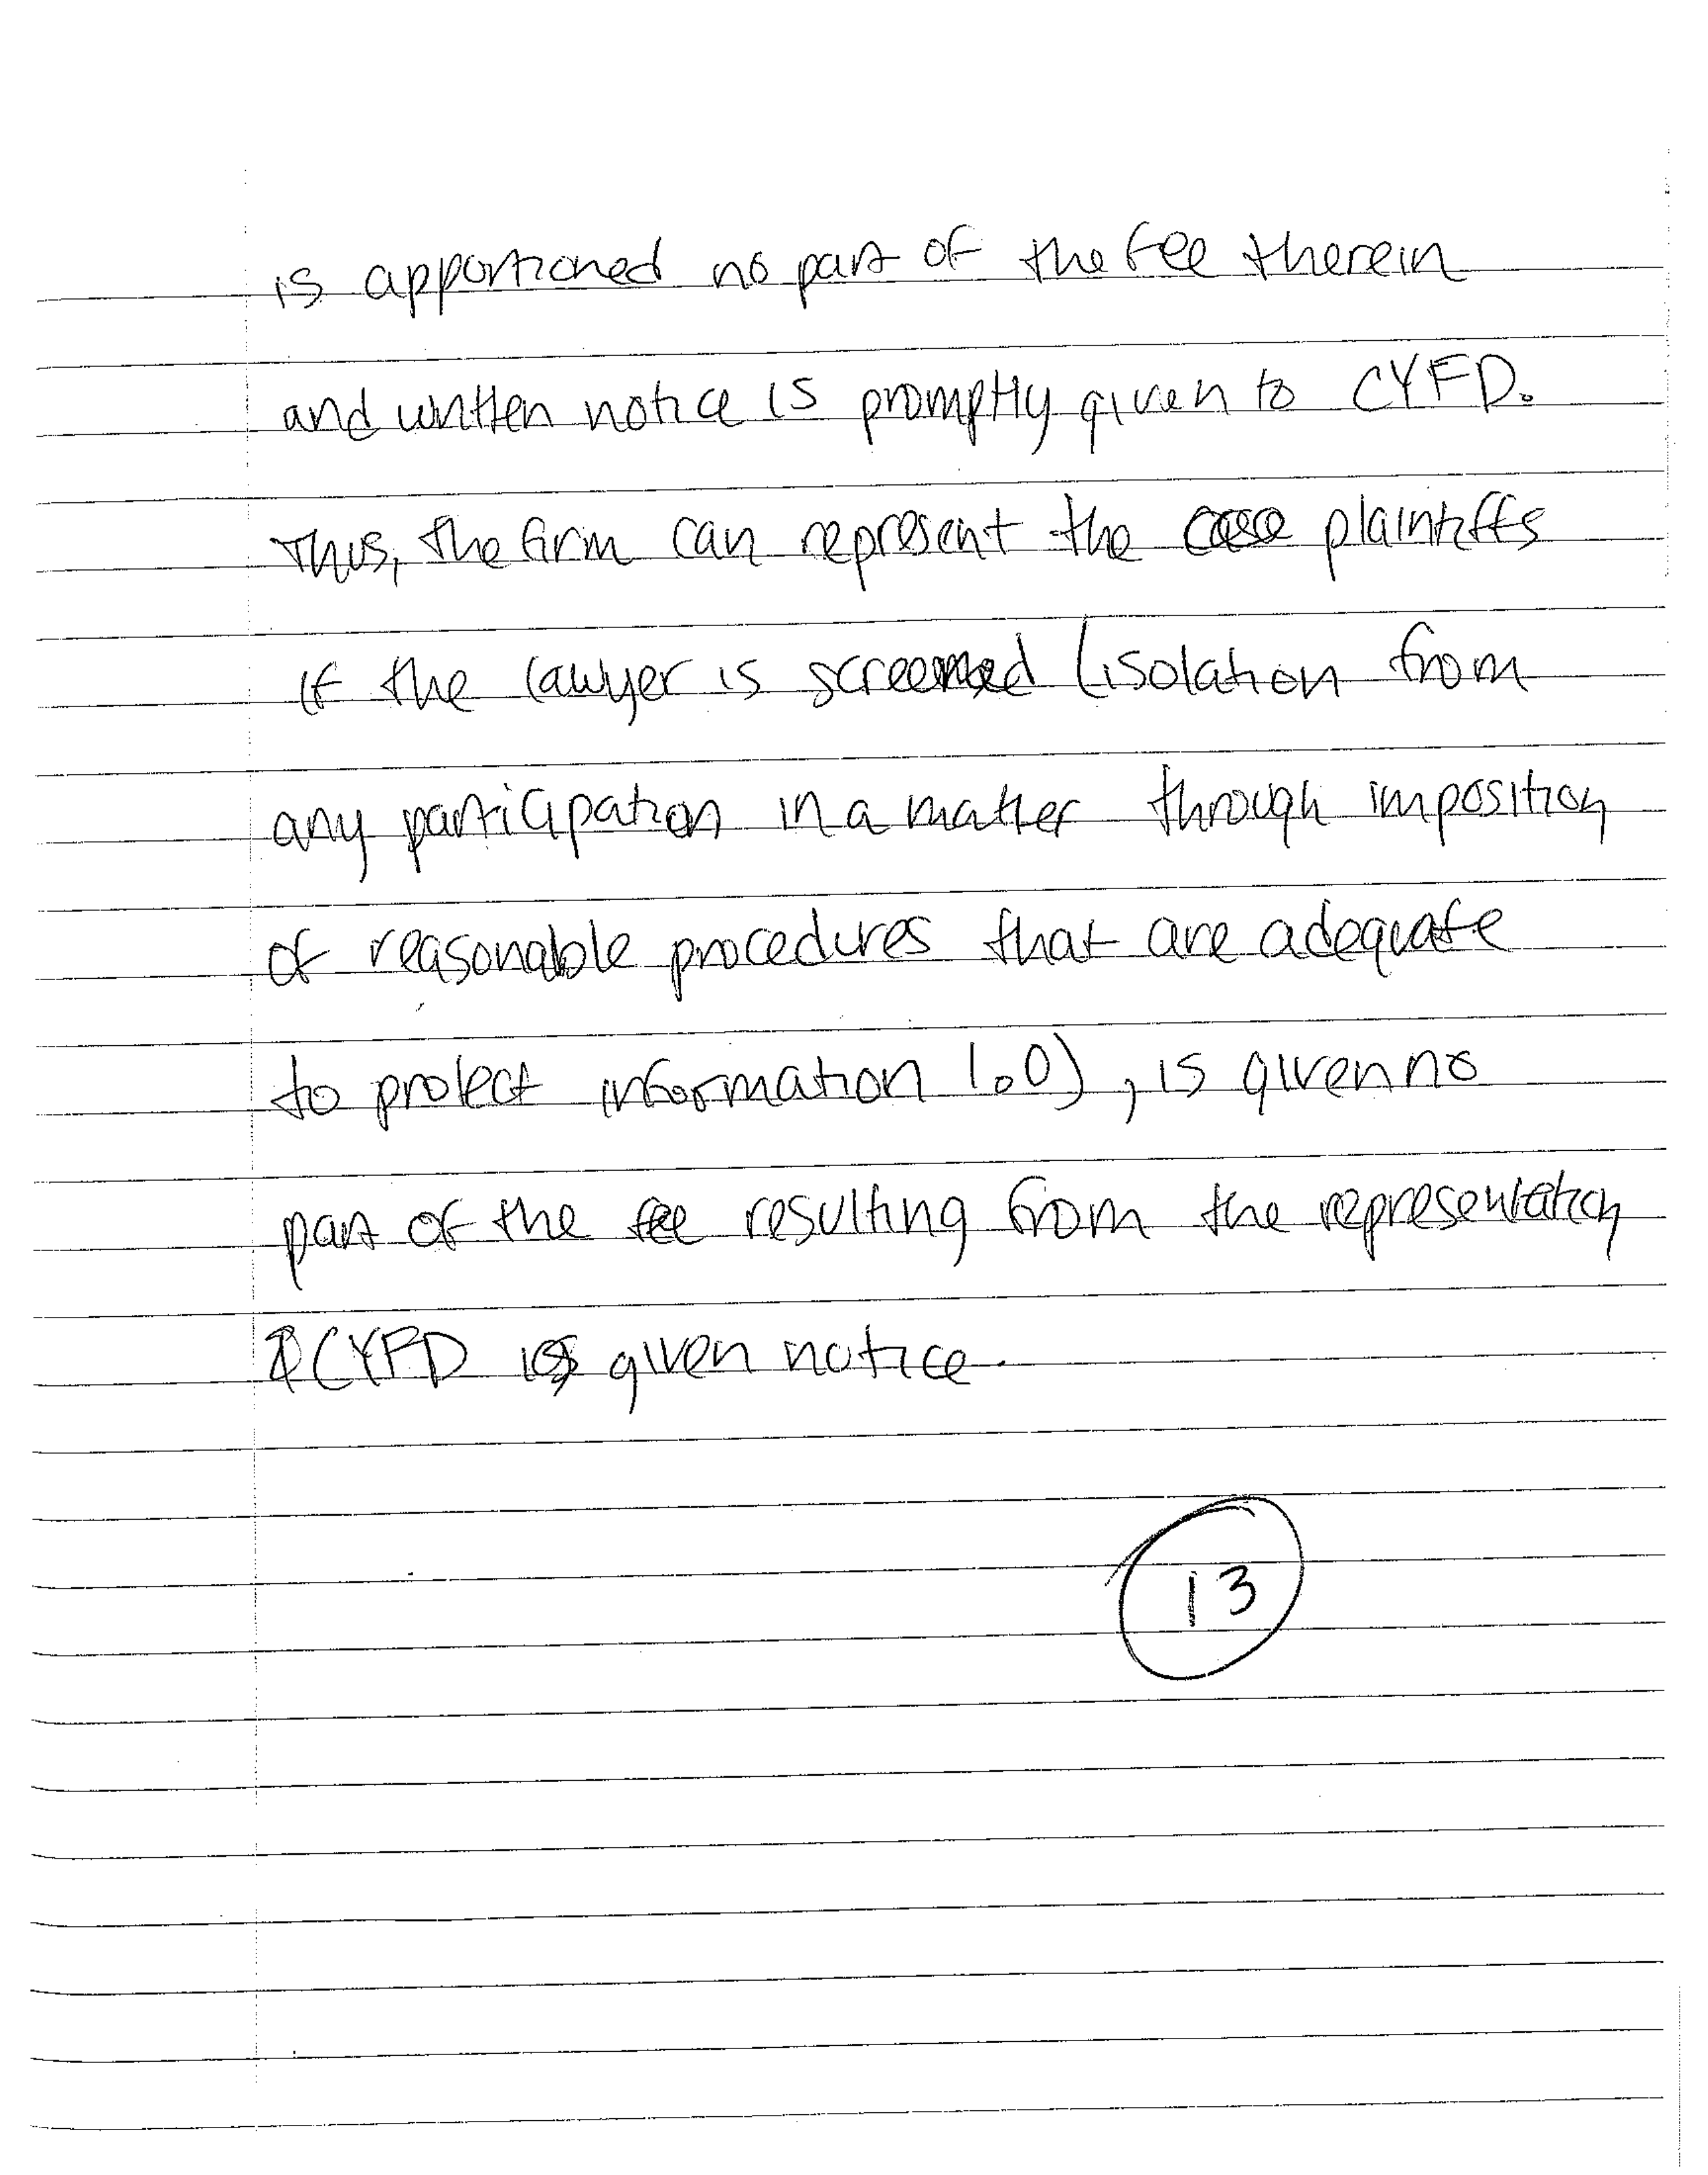 is apportioned no part of the fee therein
and written notice is promptly given to CYFD.
Thus, the firm can represent the case plaintiffs
if the lawyer is screened (isolation from
any participation in a matter through imposition
of reasonable procedures that are adequate
to protect information 1.0), is given no
part of the fee resulting from the representation
& CYFD is given notice.
13